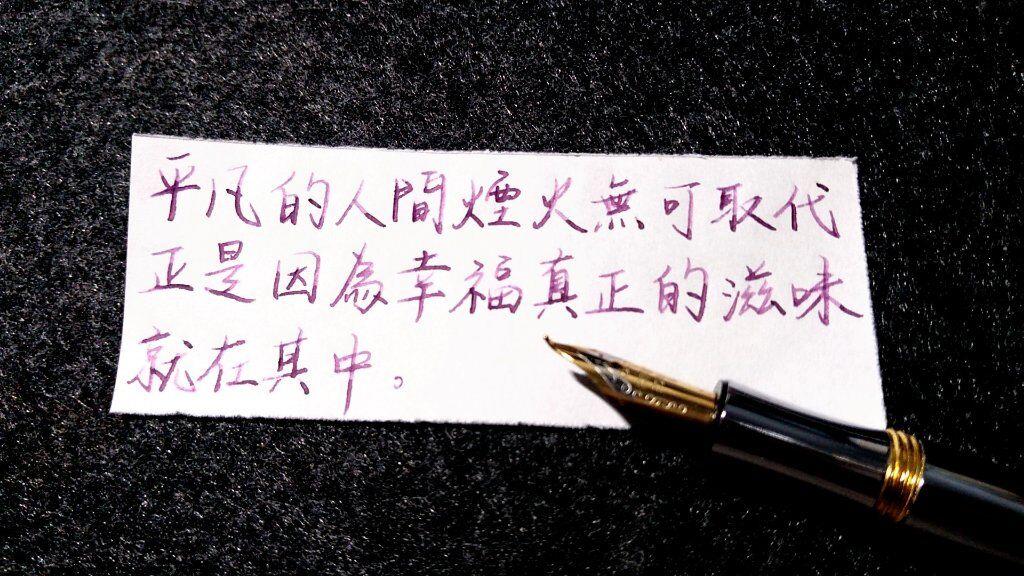 平凡的人間煙火無可取代
正是因為幸福真正的滋味
就在其中。